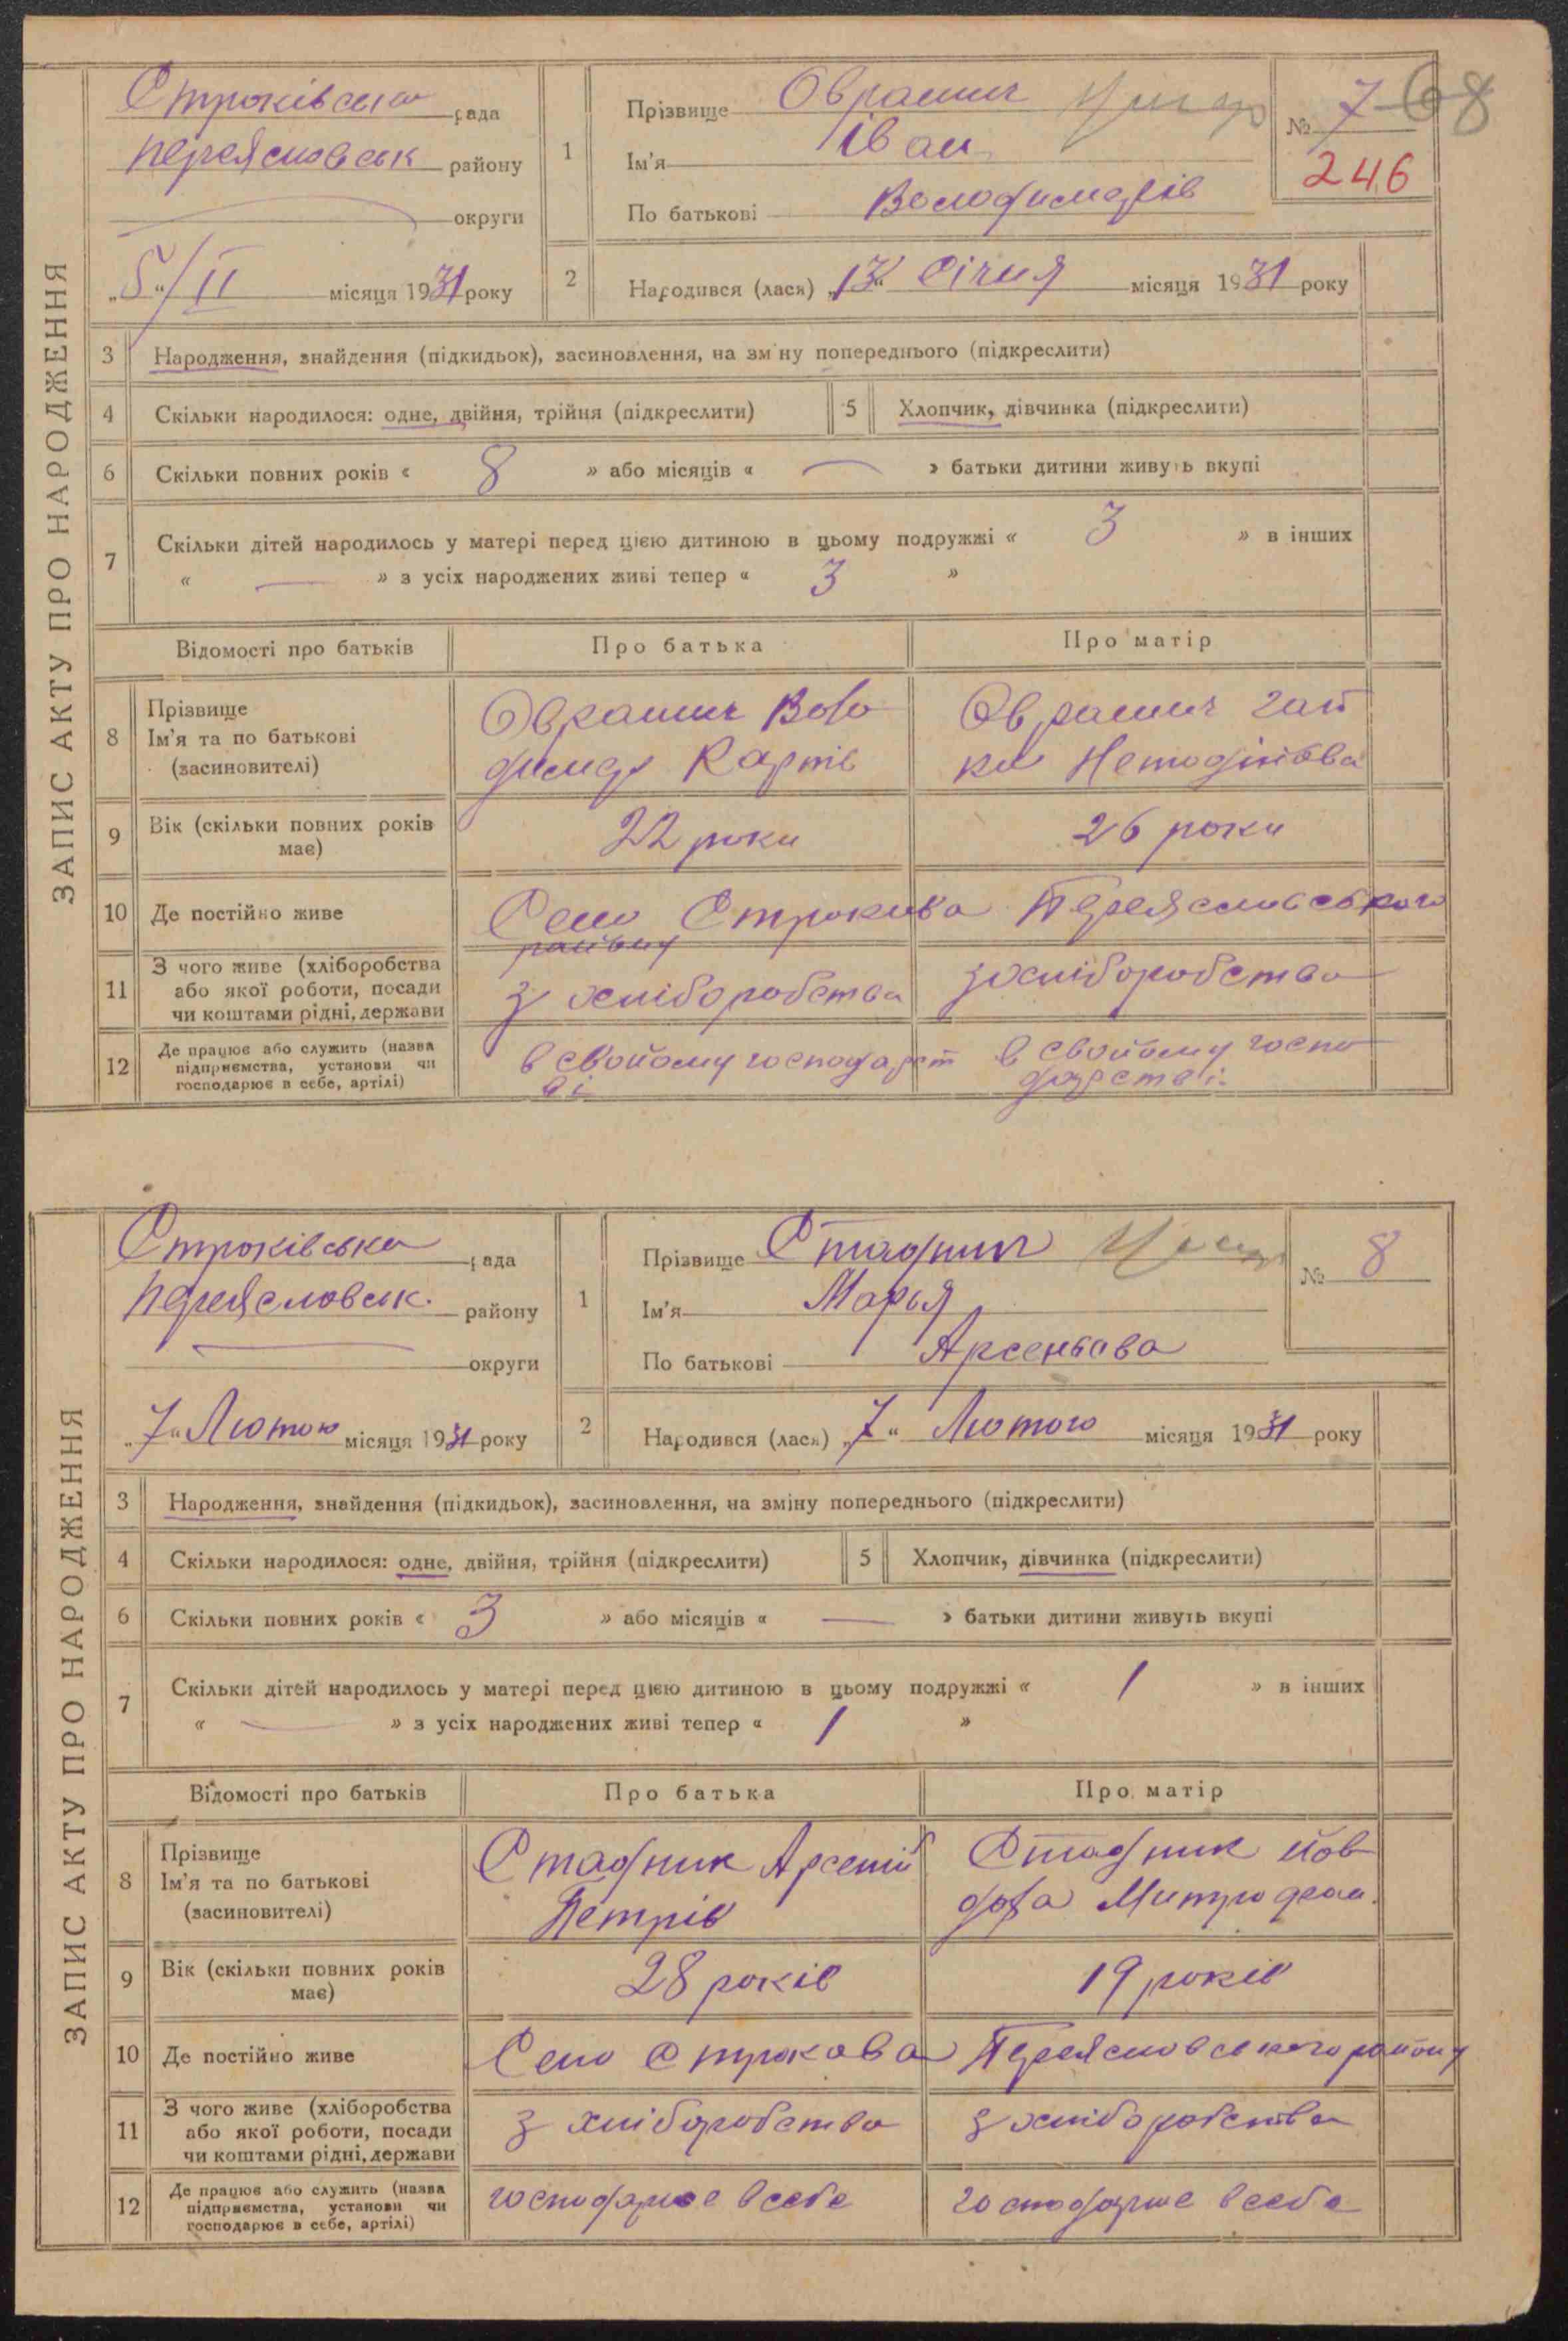 ЗАПИС АКТУ ПРО НАРОДЖЕННЯ
Строківська рада
Переясловськ району
округи
„5“/II місяця 1931 року
1
Прізвище Овраших
Ім'я Іван
По батькові Володимирів
№ 7
68
246
2
Народився (лася) „13“ Січня місяця 1931 року
3 Народження, знайдення (підкидьок), засиновлення, на зміну попереднього (підкреслити)
4 Скільки народилося: одне, двійня, трійня (підкреслити)
5 Хлопчик, дівчинка (підкреслити)
6 Скільки повних років « 8 » або місяців « — » батьки дитини живуть вкупі
7 Скільки дітей народилось у матері перед цією дитиною в цьому подружжі « 3 » в інших
« — » з усіх народжених живі тепер « 3 »
Відомості про батьків
Про батька
Про матір
8
Прізвище
Ім'я та по батькові
(засиновителі)
Воло
димир Карпів
9
Вік (скільки повних років
має)
22 роки
26 роки
10 Де постійно живе
Село Строкова Переясловського
району
11
З чого живе (хліборобства
або якої роботи, посади
чи коштами рідні, держави
з хліборобства
з хліборобства
12
Де працює або служить (назва
підприємства, установи чи
господарює в себе, артілі)
в свойому господарст
ві
в свойому госпо
дарстві
ЗАПИС АКТУ ПРО НАРОДЖЕННЯ
Строківська рада
Переясловськ. району
округи
„7“ Лютого місяця 1931 року
1
Прізвище Стадник
Ім'я Марья
По батькові Арсеньова
№ 8
2
Народився (лася) „7“ Лютого місяця 1931 року
3 Народження, знайдення (підкидьок), засиновлення, на зміну попереднього (підкреслити)
4 Скільки народилося: одне, двійня, трійня (підкреслити)
5 Хлопчик, дівчинка (підкреслити)
6 Скільки повних років « 3 » або місяців « — » батьки дитини живуть вкупі
7 Скільки дітей народилось у матері перед цією дитиною в цьому подружжі « 1 » в інших
« — » з усіх народжених живі тепер « 1 »
Відомості про батьків
Про батька
Про матір
8
Прізвище
Ім'я та по батькові
(засиновителі)
Стадник Арсеній
Петрів
Стадник Йов
доха
9
Вік (скільки повних років
має)
28 років
19 років
10 Де постійно живе
Село Строкова Переясловського району
11
З чого живе (хліборобства
або якої роботи, посади
чи коштами рідні, держави
з хліборобства
з хліборобства
12
Де працює або служить (назва
підприємства, установи чи
господарює в себе, артілі)
господарює в себе
господарює в себе